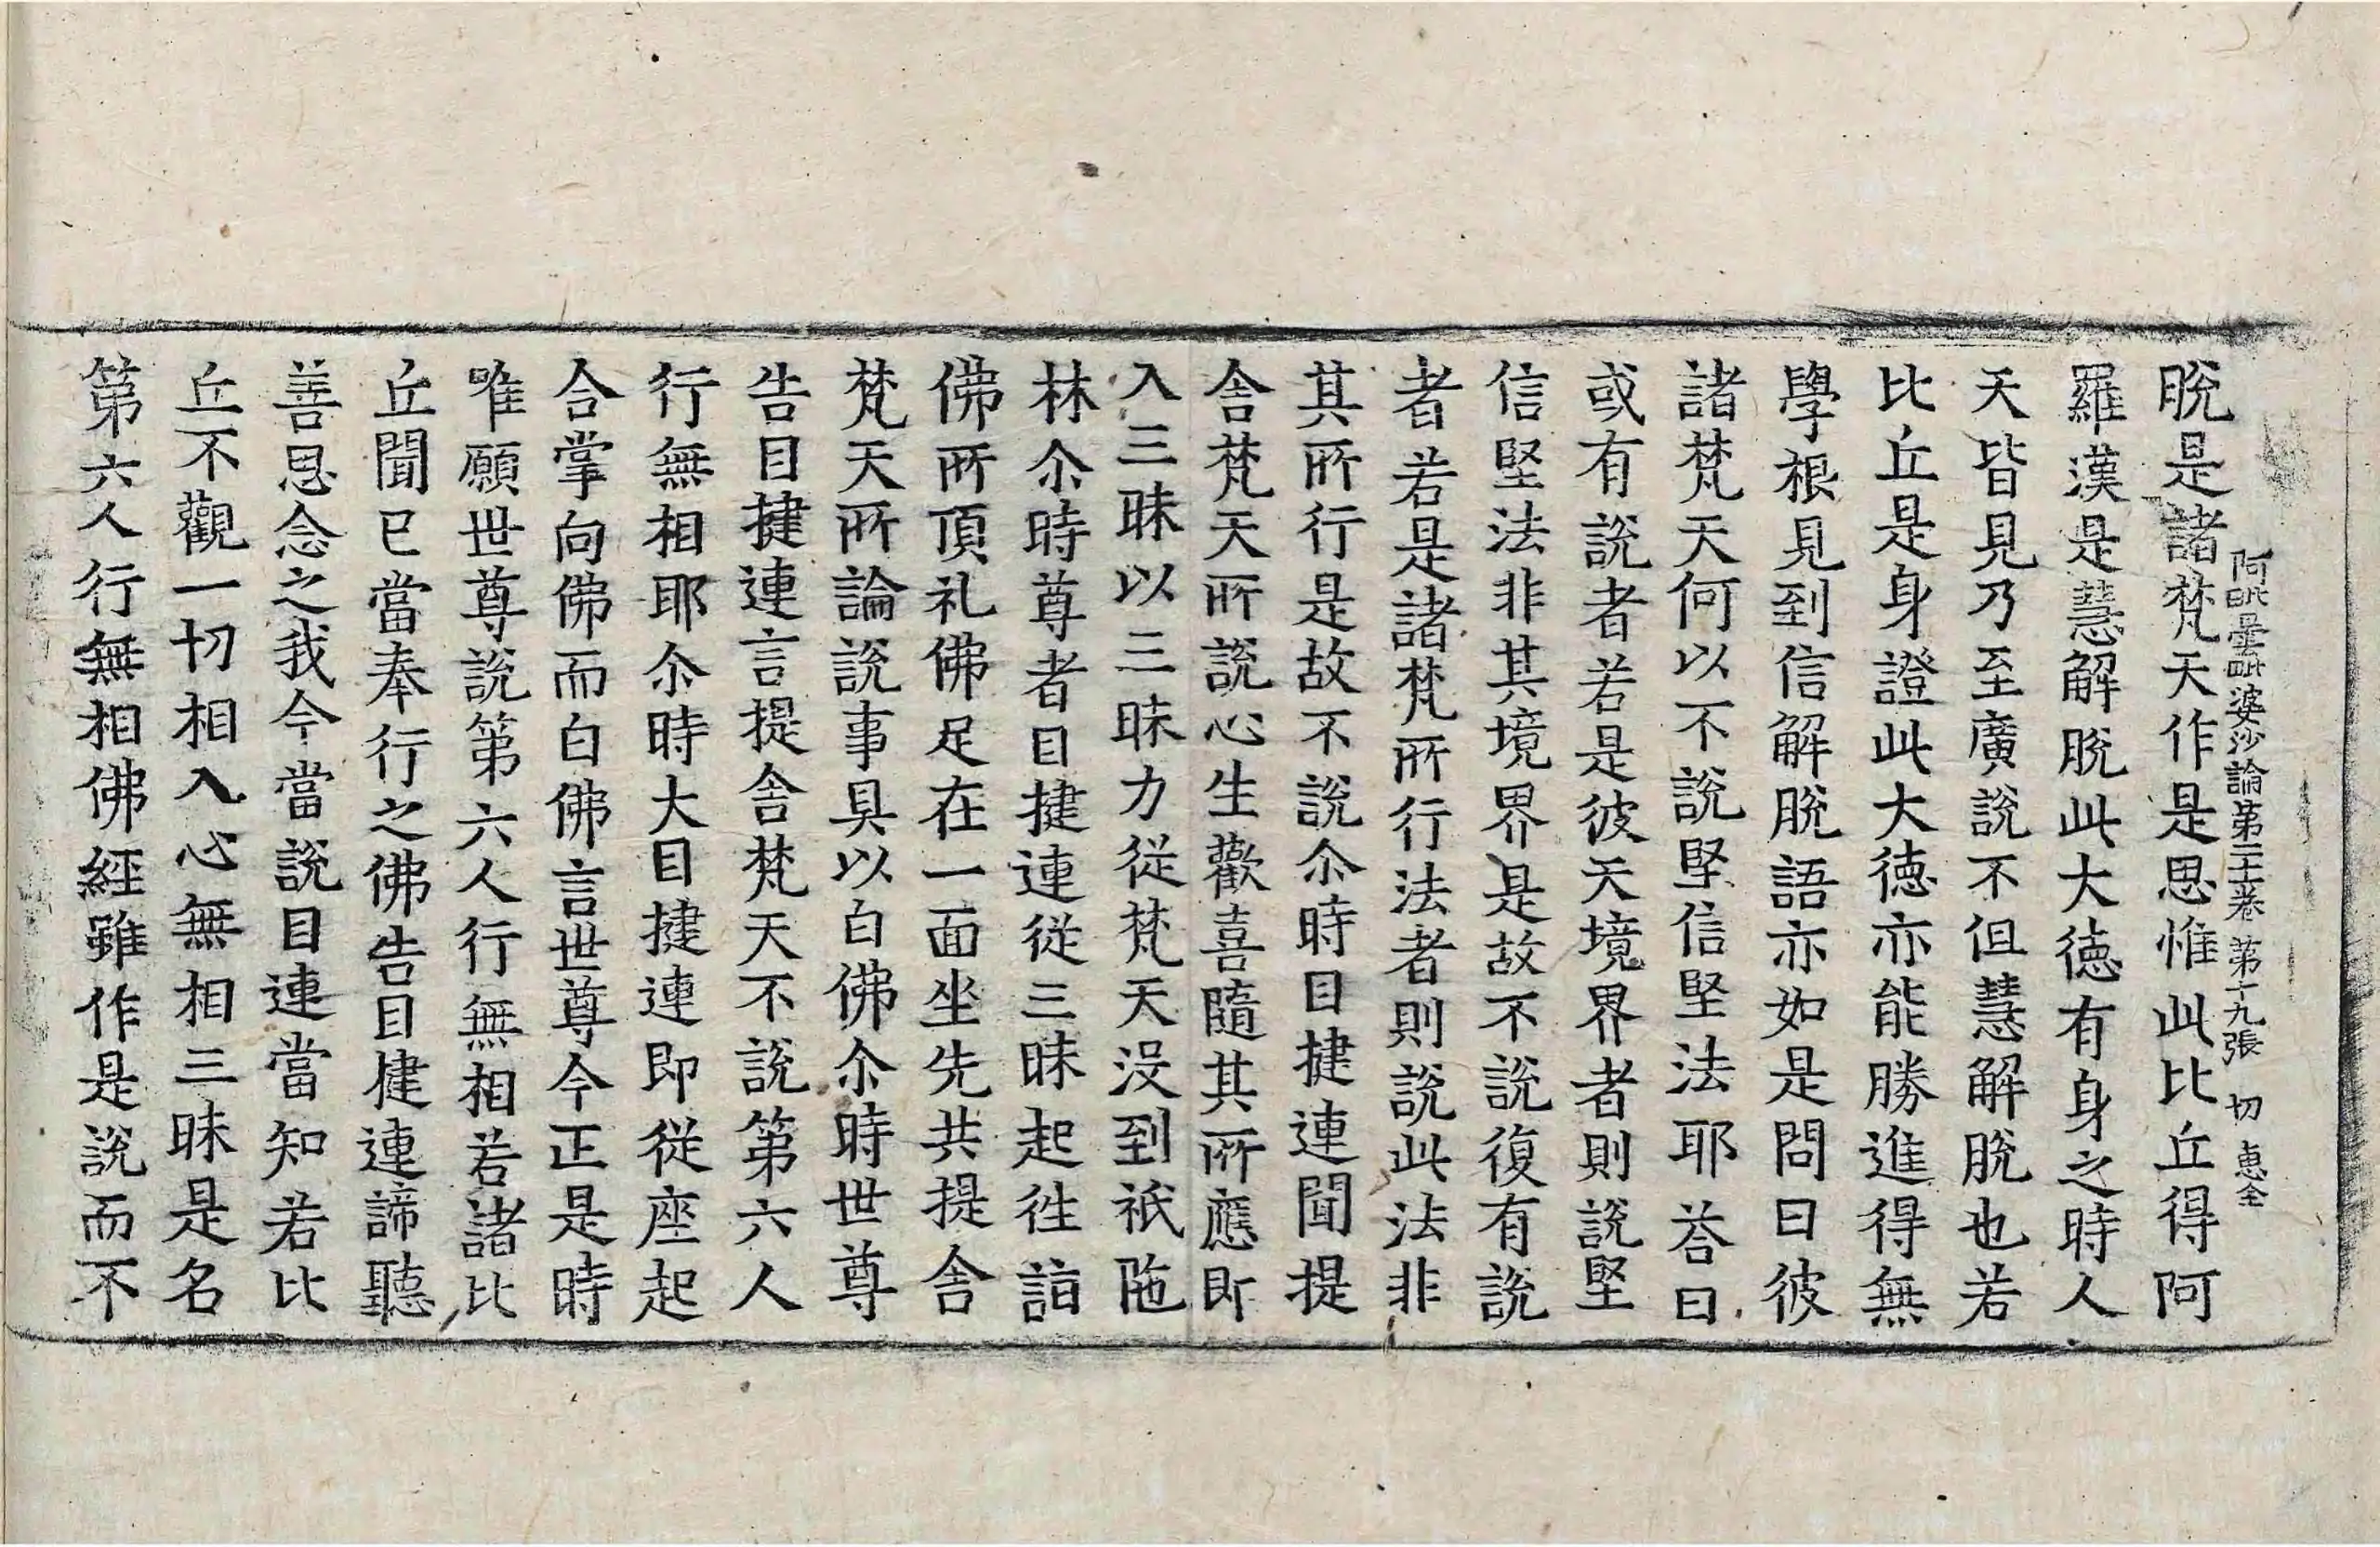 阿毗曇毗婆沙論第三十卷 第十九張 切 惠全
脫是諸梵天作是思惟此比丘得阿
羅漢是慧解脫此大德有身之時人
天皆見乃至廣說不但慧解脫也若
比丘是身證此大德亦能勝進得無
學根見到信解脫語亦如是問曰彼
諸梵天何以不說堅信堅法耶荅曰
或有說者若是彼天境界者則說堅
信堅法非其境界是故不說復有說
者若是諸梵所行法者則說此法非
其所行是故不說尒時目揵連聞提
舍梵天所說心生歡喜隨其所應即
入三昧以三昧力從梵天沒到祇陁
林尒時尊者目揵連從三昧起往詣
佛所頂礼佛足在一面坐先共提舍
梵天所論說事具以白佛尒時世尊
告目揵連言提舍梵天不說第六人
行無相耶尒時大目揵連即從座起
合掌向佛而白佛言世尊今正是時
唯願世尊說第六人行無相若諸比
丘聞已當奉行之佛告目揵連諦聽
善思念之我今當說目連當知若比
丘不觀一切相入心無相三昧是名
第六人行無相佛經雖作是說而不